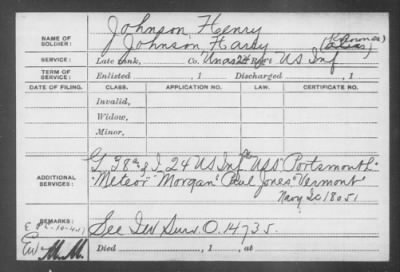 NAME OF SOLDIER: Johnson, Henry
Johnson, Harry (alias)
SERVICE: Late rank, Co. Unas 24 Reg't US Inf
TERM OF SERVICE: Enlisted , 1 Discharged , 1
DATE OF FILING. CLASS. APPLICATION NO. LAW. CERTIFICATE NO.
Invalid,
Widow,
Minor,
ADDITIONAL SERVICES: G 38 & I 24 US Inf USS "Portsmouth"
"Meteor" "Morgan" "Paul Jones" "Vermont"
Navy
REMARKS: See Surv. O. 14735.
Died , 1 , at